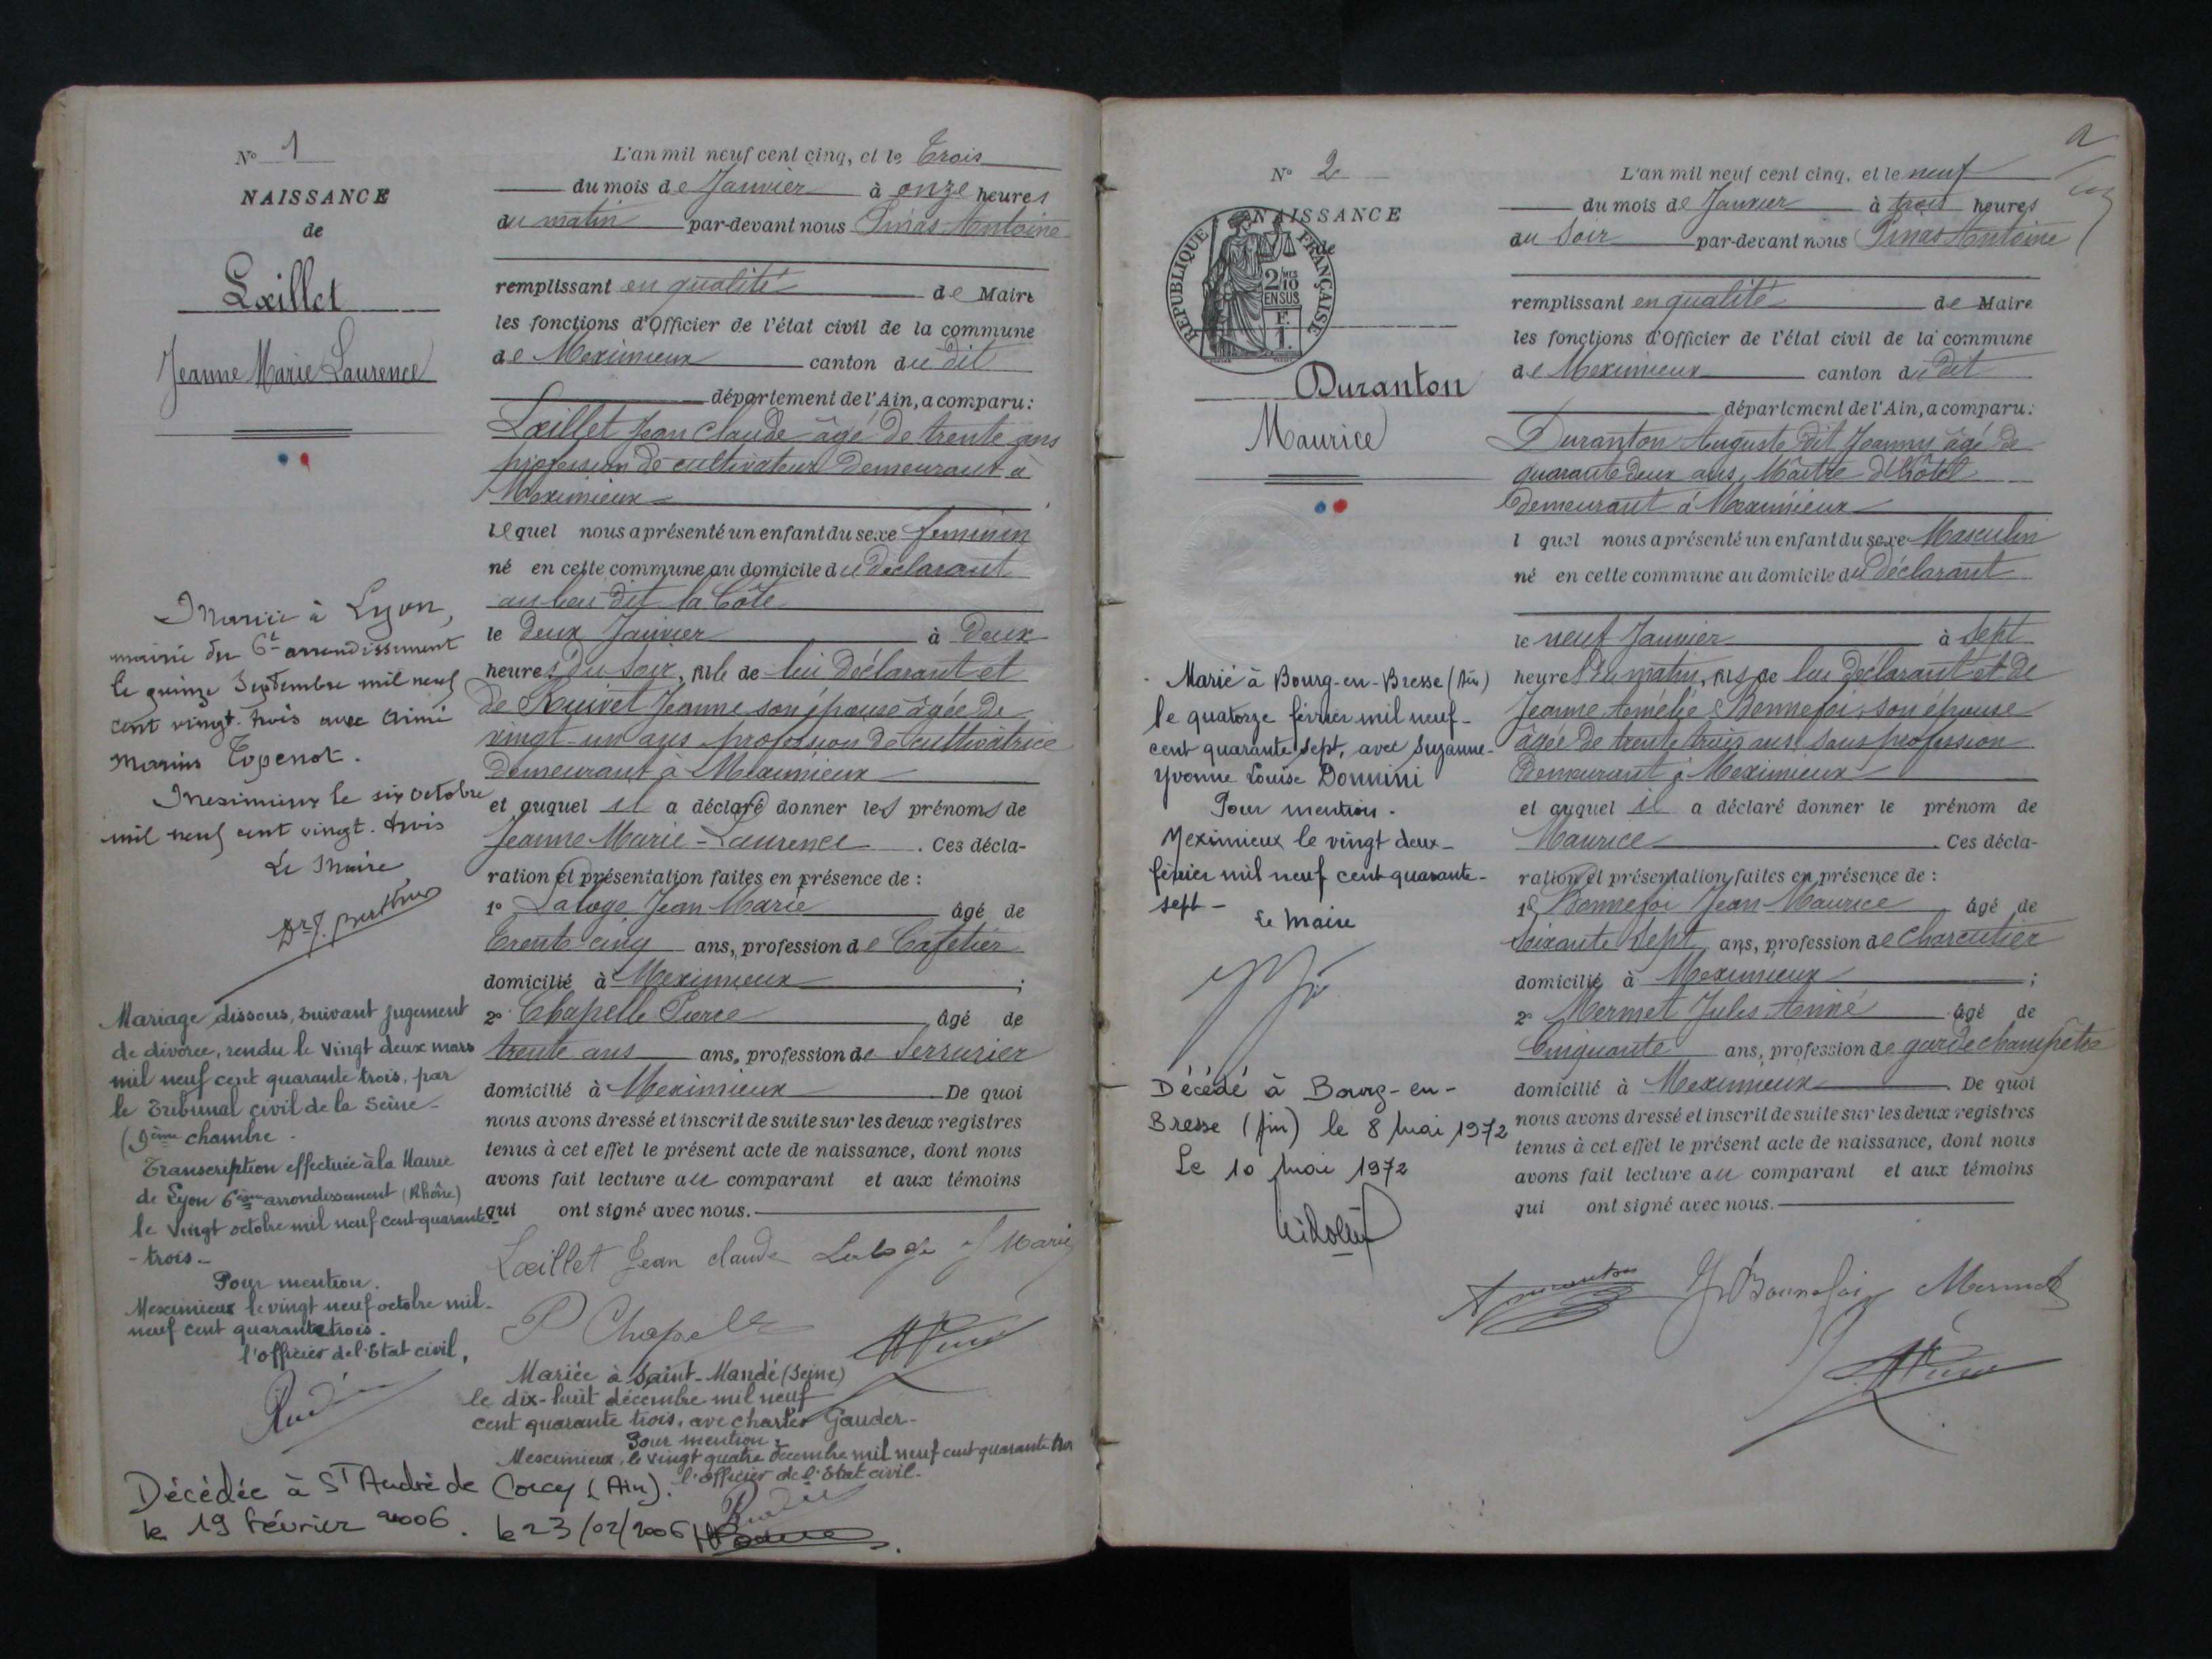 N° 1
NAISSANCE
de
Lœillet
Jeanne Marie Laurence
Mariée à Lyon,
mairie du 6e arrondissement
le quinze Septembre mil neuf
cent vingt-trois avec Aimé
Marius Topenot.
Meximieux le six octobre
mil neuf cent vingt-trois
Le Maire
Mariage dissous, suivant jugement
de divorce, rendu le vingt deux mars
mil neuf cent quarante trois, par
le Tribunal civil de la Seine-
(9ème chambre-
Transcription effectuée à la Mairie
de Lyon 6ème arrondissement (Rhône)
le vingt octobre mil neuf cent quarante-
-trois-
Pour mention.
Meximieux le vingt neuf octobre mil-
neuf cent quarante trois.
l'officier de l'Etat civil,
L'an mil neuf cent cinq, et le Trois
du mois de Janvier à onze heures
du matin par-devant nous Pinas Antoine
remplissant en qualité de Maire
les fonctions d'Officier de l'état civil de la commune
de Meximieux canton du dit
département de l'Ain, a comparu:
Lœillet Jean Claude âgé de trente ans
profession de cultivateur demeurant à
Meximieux
lequel nous a présenté un enfant du sexe féminin
né en cette commune au domicile du déclarant
au lieu dit la Côte
le deux Janvier à Deux
heures du soir, fille de lui déclarant et
de Jeanne son épouse âgée de
vingt-un ans profession de cultivatrice
demeurant à Meximieux
et auquel il a déclaré donner les prénoms de
Jeanne Marie-Laurence. Ces décla-
ration et présentation faites en présence de :
1° Laloge Jean Marie âgé de
trente cinq ans, profession de Cafetier
domicilié à Meximieux ;
2° Chapelle Pierre âgé de
trente ans ans, profession de Serrurier
domicilié à Meximieux De quoi
nous avons dressé et inscrit de suite sur les deux registres
tenus à cet effet le présent acte de naissance, dont nous
avons fait lecture au comparant et aux témoins
qui ont signé avec nous.
Lœillet Jean claude Laloge J Marie
P Chapelle
Mariée à Saint-Mandé (Seine)
le dix-huit décembre mil neuf
cent quarante trois, avec Charles Gauder-
Pour mention:
Meximieux, le vingt quatre décembre mil neuf cent quarante trois
l'officier de l'Etat civil.
Décédée à St André de Corcy (Ain).
le 19 février 2006. le 23/02/2006
N° 2
NAISSANCE
de
REPUBLIQUE FRANÇAISE
2/10 MES
EN SUS
F.
1.
Duranton
Maurice
Marié à Bourg-en-Bresse (Ain)
le quatorze février mil neuf-
cent quarante sept, avec Suzanne-
Yvonne Louise Donnini
Pour mention.
Meximieux le vingt deux-
février mil neuf cent quarante-
sept-
Le Maire
Décédé à Bourg-en-
Bresse (Ain) le 8 mai 1972
Le 10 mai 1972
L'an mil neuf cent cinq, et le neuf
du mois de Janvier à trois heures
du soir par-devant nous Pinas Antoine
remplissant en qualité de Maire
les fonctions d'Officier de l'état civil de la commune
de Meximieux canton du dit
département de l'Ain, a comparu:
Duranton Auguste dit Joanny âgé de
quarante deux ans, Maître d'hôtel
demeurant à Meximieux
l quel nous a présenté un enfant du sexe Masculin
né en cette commune au domicile du déclarant
le neuf Janvier à Sept
heures du matin, fils de lui déclarant et de
Jeanne Amélie Bonnefoi, son épouse
âgée de trente trois ans sans profession
demeurant à Meximieux
et auquel il a déclaré donner le prénom de
Maurice. Ces décla-
ration et présentation faites en présence de :
1° Bonnefoi Jean Maurice âgé de
Soixante Sept ans, profession de Charcutier
domicilié à Meximieux ;
2° Mermet Jules Aimé âgé de
Cinquante ans, profession de garde champêtre
domicilié à Meximieux De quoi
nous avons dressé et inscrit de suite sur les deux registres
tenus à cet effet le présent acte de naissance, dont nous
avons fait lecture au comparant et aux témoins
qui ont signé avec nous.
Duranton Bonnefoi Mermet